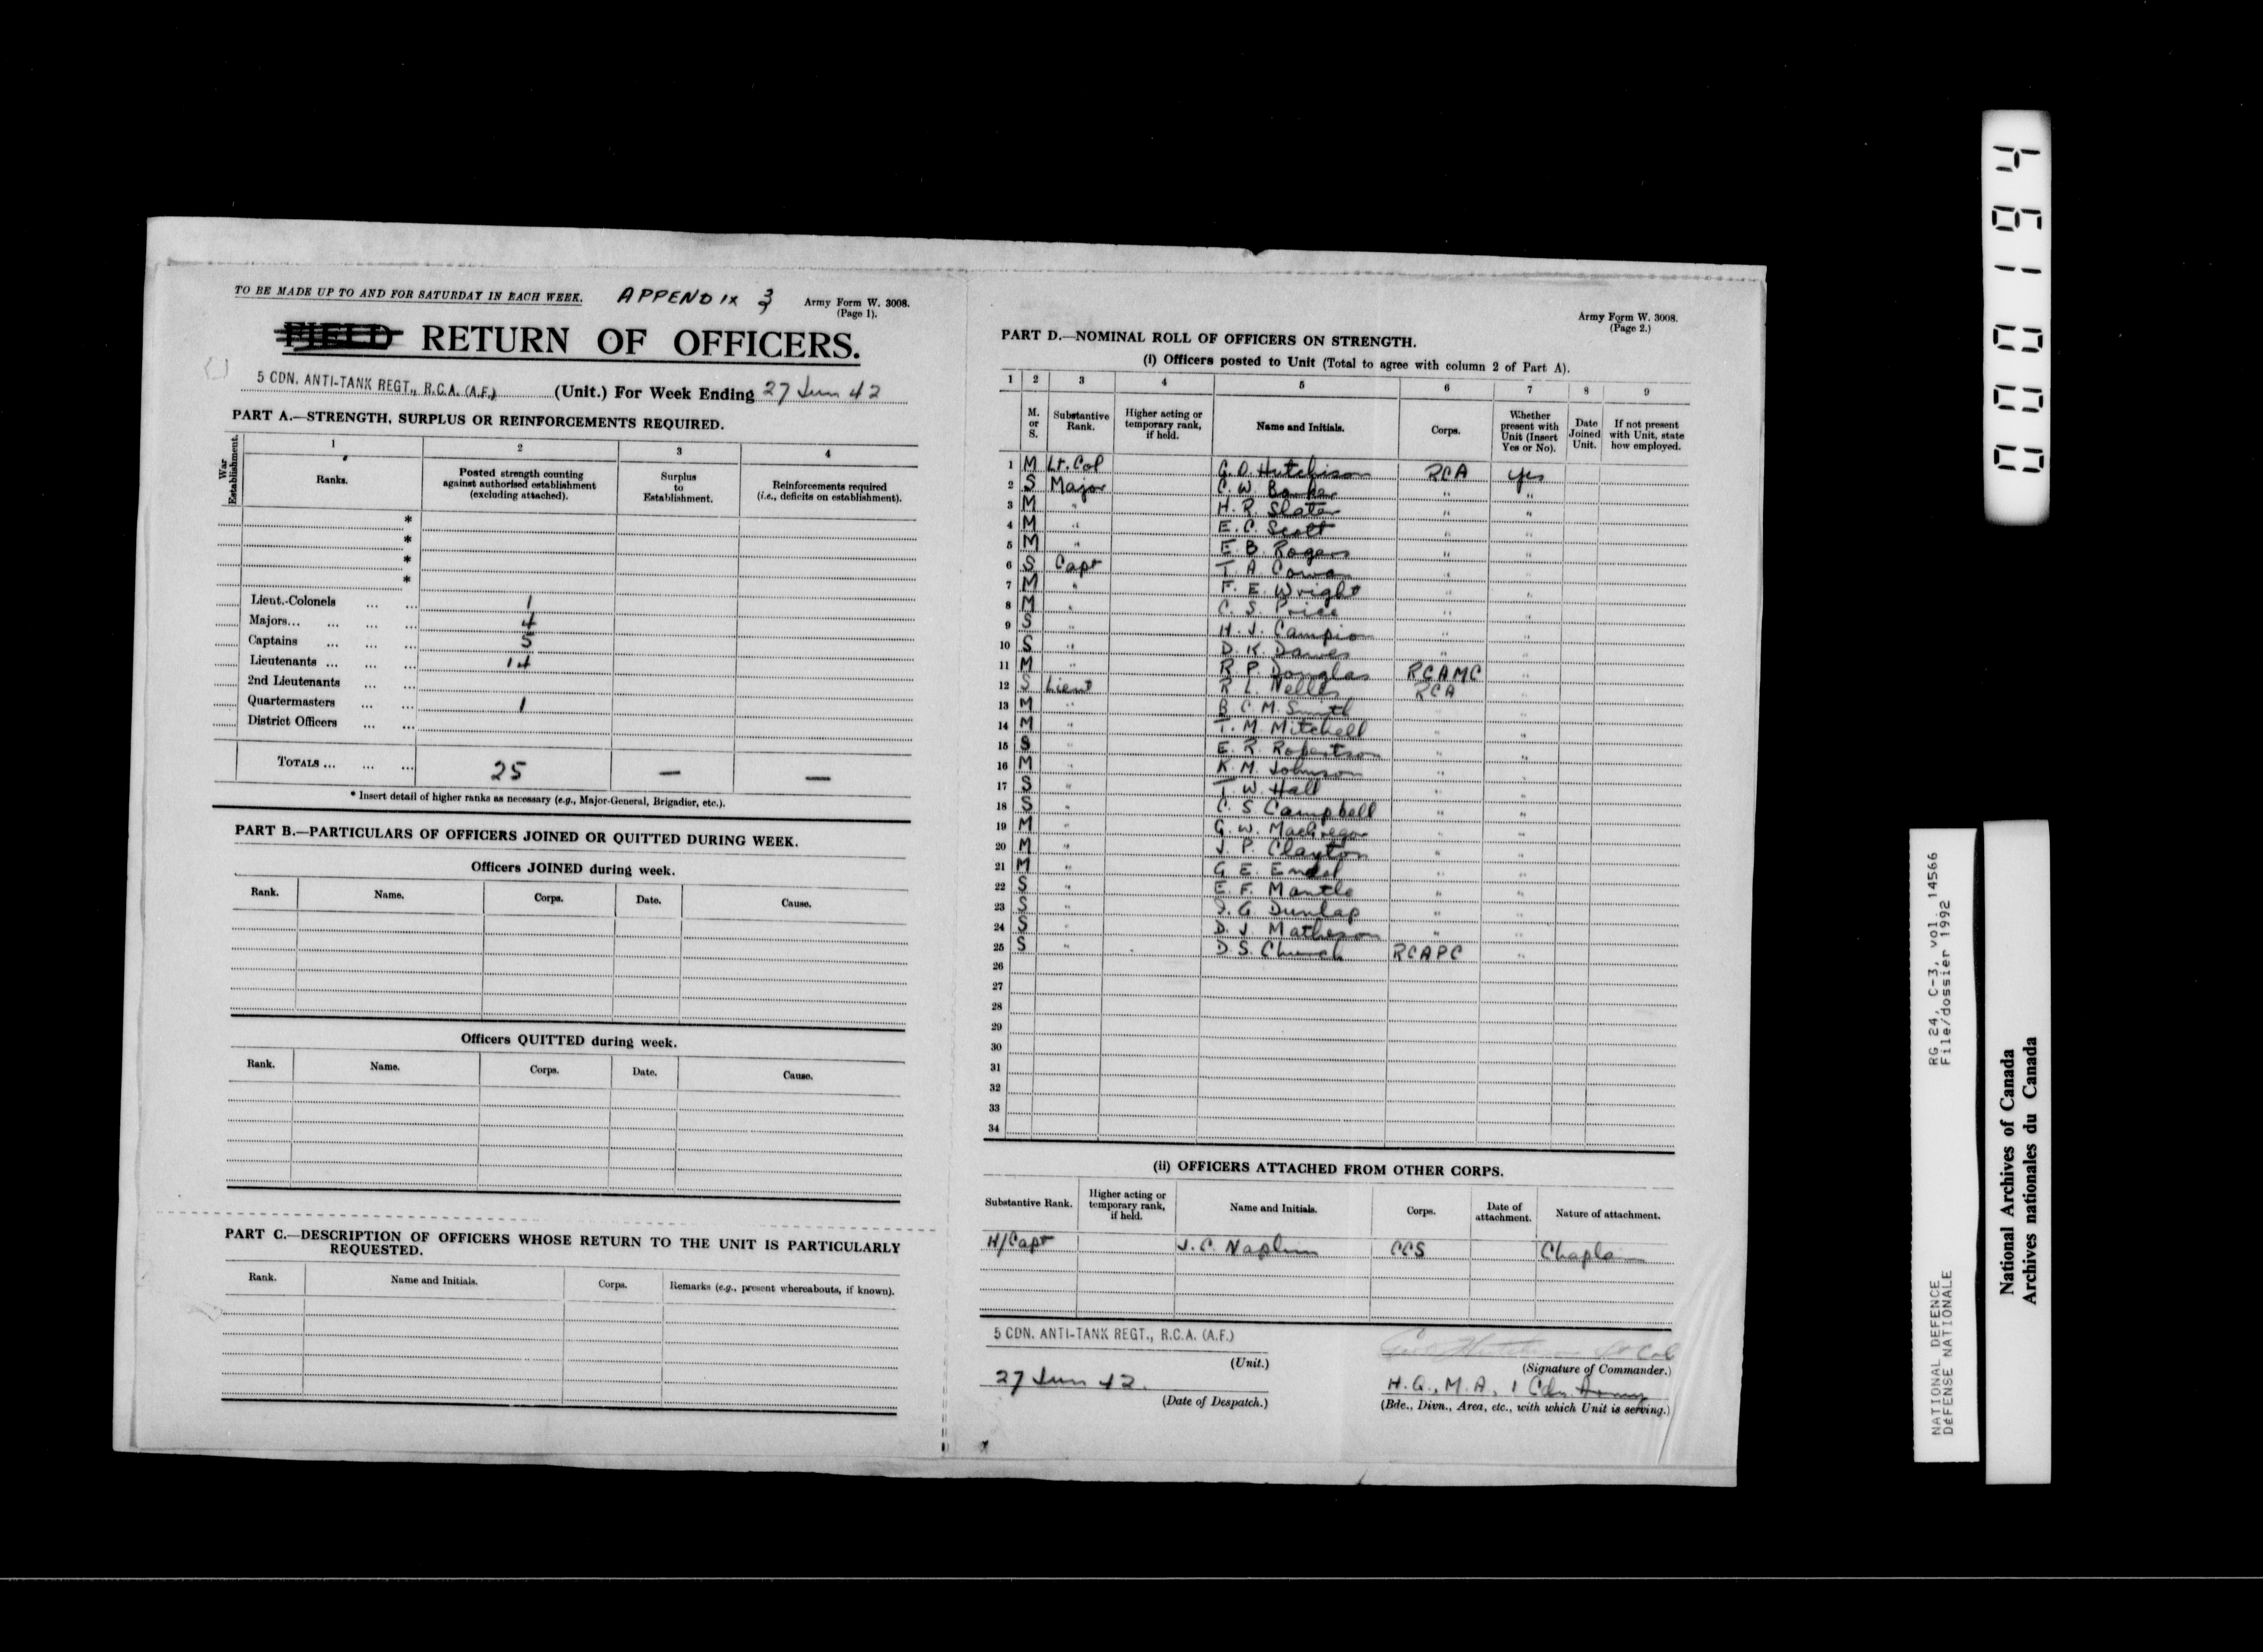 TO BE MADE UP TO AND FOR SATURDAY IN EACH WEEK. APPENDIX 3 Army Form W. 3008.
(Page 1).
FIELD RETURN OF OFFICERS.
5 CDN. ANTI-TANK REGT., R.C.A. (A.F.) (Unit.) For Week Ending 27 Jun 42
PART A.—STRENGTH, SURPLUS OR REINFORCEMENTS REQUIRED.
War Establishment.
1 2 3 4
Ranks. Posted strength counting against authorised establishment (excluding attached). Surplus to Establishment. Reinforcements required (i.e., deficits on establishment).
*
*
*
*
Lieut.-Colonels ... ... 1
Majors... ... ... ... 4
Captains ... ... ... 5
Lieutenants ... ... ... 14
2nd Lieutenants ... ...
Quartermasters ... ... 1
District Officers ... ...
TOTALS ... ... ... 25 — —
* Insert detail of higher ranks as necessary (e.g., Major-General, Brigadier, etc.).
PART B.—PARTICULARS OF OFFICERS JOINED OR QUITTED DURING WEEK.
Officers JOINED during week.
Rank. Name. Corps. Date. Cause.
Officers QUITTED during week.
Rank. Name. Corps. Date. Cause.
PART C.—DESCRIPTION OF OFFICERS WHOSE RETURN TO THE UNIT IS PARTICULARLY
REQUESTED.
Rank. Name and Initials. Corps. Remarks (e.g., present whereabouts, if known).
Army Form W. 3008.
(Page 2.)
PART D.—NOMINAL ROLL OF OFFICERS ON STRENGTH.
(i) Officers posted to Unit (Total to agree with column 2 of Part A).
1 2 3 4 5 6 7 8 9
M. or S. Substantive Rank. Higher acting or temporary rank, if held. Name and Initials. Corps. Whether present with Unit (Insert Yes or No). Date Joined Unit. If not present with Unit, state how employed.
1 M Lt. Col G. D. Hutchison RCA Yes
2 S Major C. W. Barker " "
3 M " H. R. Slater " "
4 M " E. C. Scott " "
5 M " E. B. Rogers " "
6 S Capt T. A. Cowan " "
7 M " F. E. Wright " "
8 M " C. S. Price " "
9 S " H. J. Campion " "
10 S " D. K. Dawes " "
11 M " R. P. Douglas RCAMC "
12 S Lieut R. L. Nelles RCA "
13 M " B. C. M. Smith "
14 M " T. M. Mitchell " "
15 S " E. R. Robertson " "
16 M " K. M. Johnson " "
17 S " T. W. Hall " "
18 S " C. S. Campbell " "
19 M " G. W. MacGregor " "
20 M " J. P. Clayton " "
21 M " G. E. " "
22 S " E. F. Mantle " "
23 S " J. G. Dunlap " "
24 S " D. J. Matheson " "
25 S " D. S. Church RCAPC "
26
27
28
29
30
31
32
33
34
(ii) OFFICERS ATTACHED FROM OTHER CORPS.
Substantive Rank. Higher acting or temporary rank, if held. Name and Initials. Corps. Date of attachment. Nature of attachment.
H/Capt J. C. CCS Chaplain
5 CDN. ANTI-TANK REGT., R.C.A. (A.F.)
(Unit.)
Lt Col
(Signature of Commander.)
27 Jun 42.
(Date of Despatch.)
H.Q., M.A, 1 Cdn. Army
(Bde., Divn., Area, etc., with which Unit is serving.)
00001914
RG 24, C-3, vol. 14566
File/dossier 1992
NATIONAL DEFENCE
DéFENSE NATIONALE
National Archives of Canada
Archives nationales du Canada